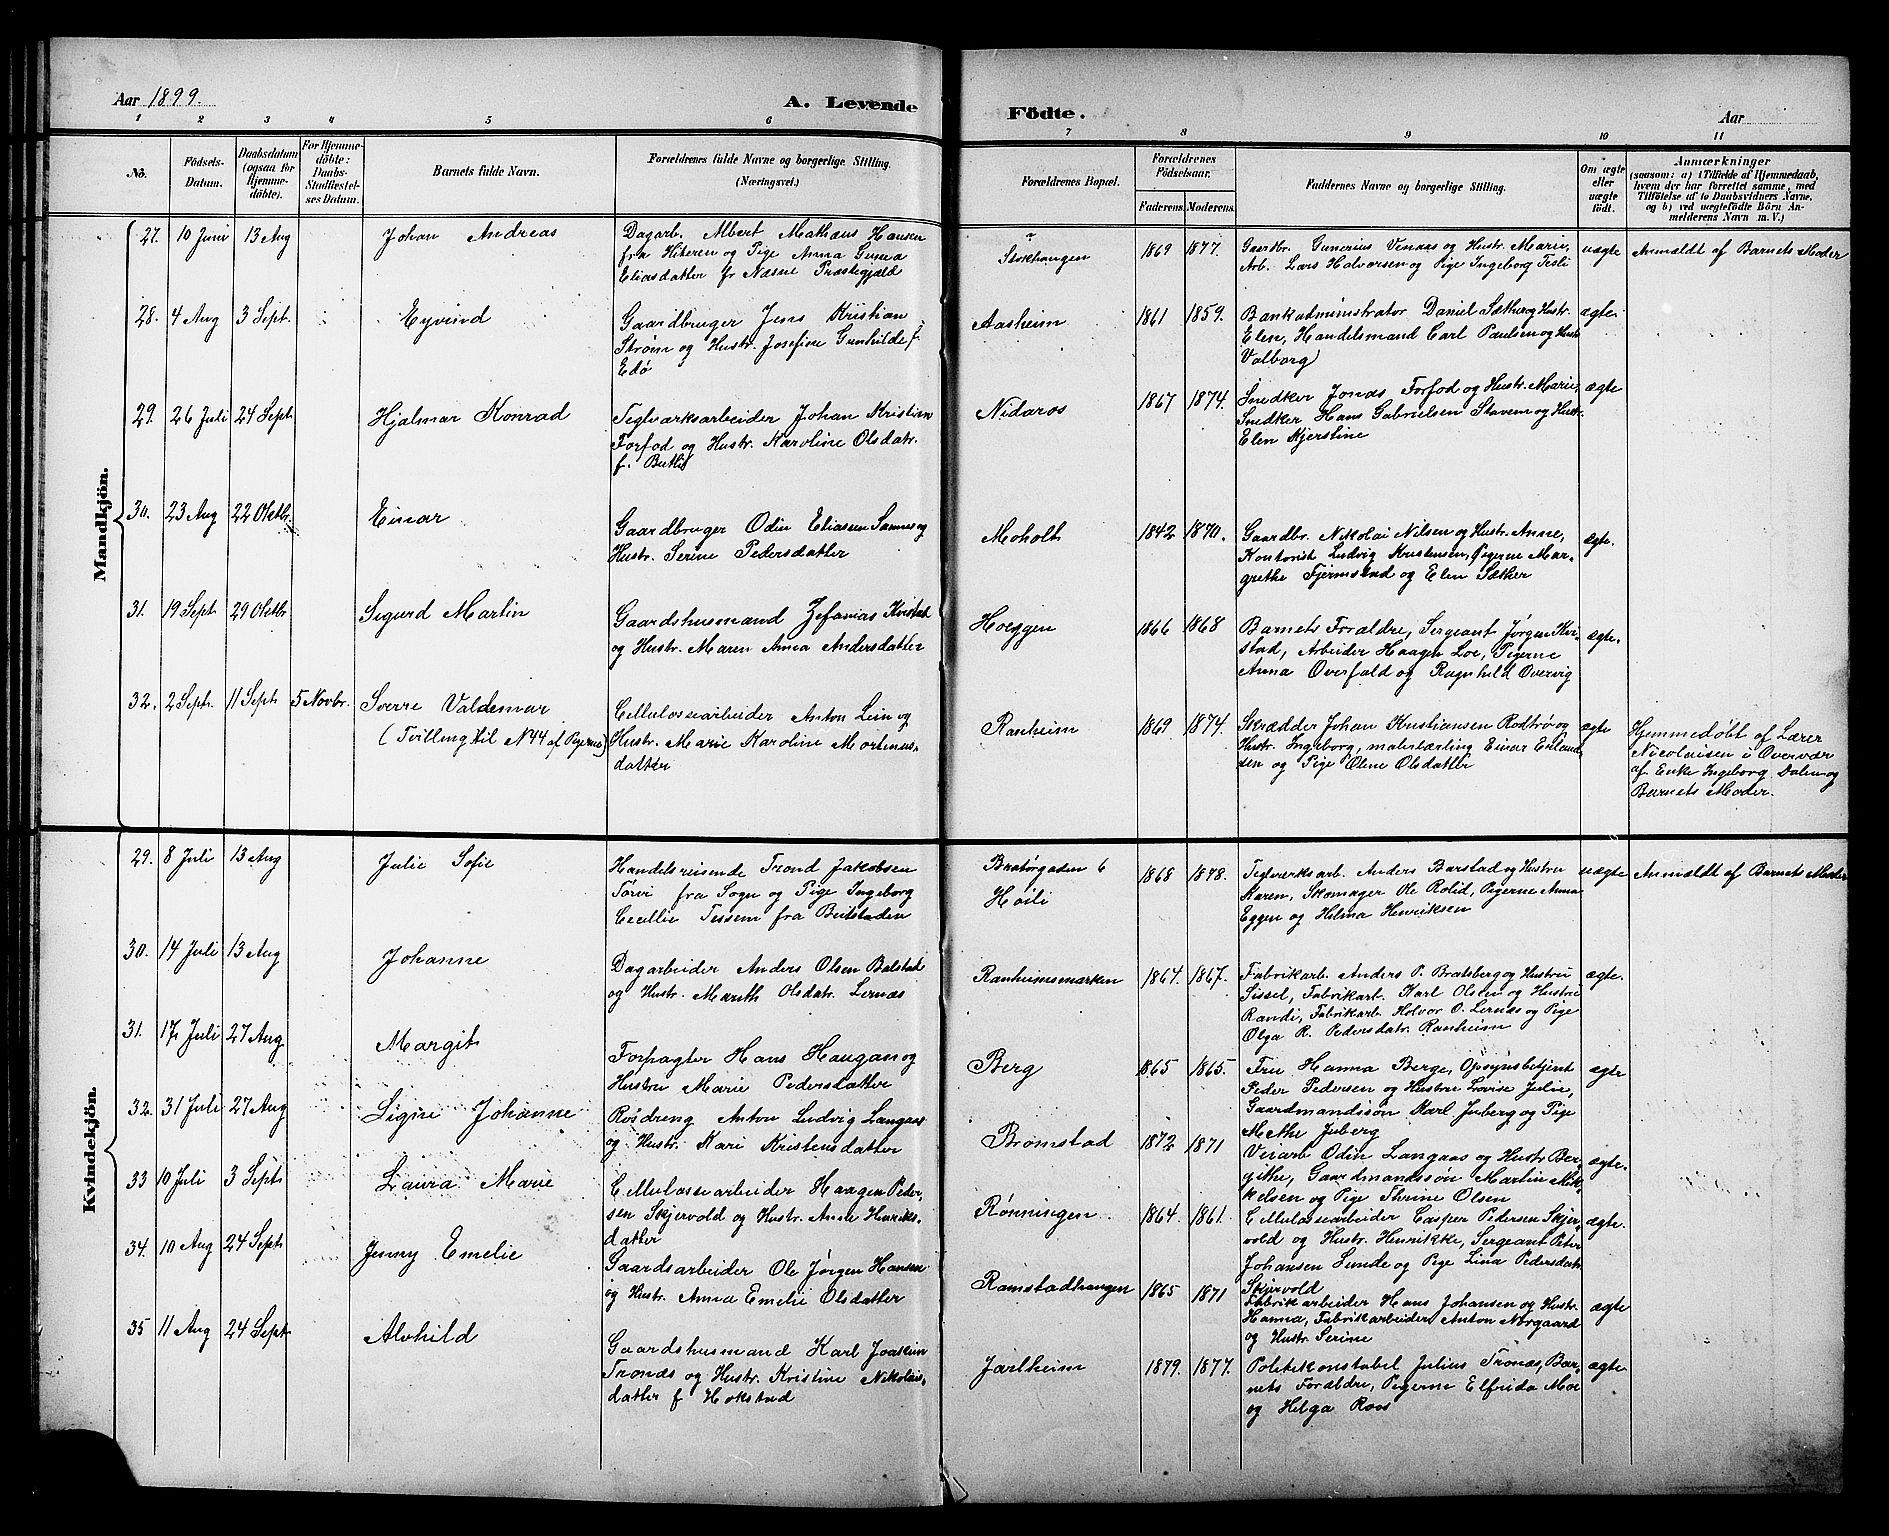 Aar 1899.
A. Levende
Födte.
Aar
1 2 3 4 5 6 7 8 9 10 11
No.
Födsels-
Datum.
Daabsdatum
(ogsaa for
Hjemme-
döbte).
For Hjemme-
döbte:
Daabs-
Stadfæstel-
ses Datum.
Barnets fulde Navn.
Forældrenes fulde Navne og borgerlige Stilling.
(Næringsvei.)
Forældrenes Bopæl.
Forældrenes
Födselsaar.
Faderens. Moderens.
Faddernes Navne og borgerlige Stilling.
Om ægte
eller
uægte
födt.
Anmærkninger
(saasom: a) i Tilfælde af Hjemmedaab,
hvem der har forrettet samme, med
Tilföielse af to Daabsvidners Navne,
og b) ved uægtefödte Börn An-
melderens Navn m. V.)
Mandkjön.
27. 10 Juni 13 Aug
Johan Andreas
Dagarb. Albert Mathias Hansen
fra Hiteren og Pige Anna Gunia
Eliasdatter fr Næsne Præstegjæld
Stokhaugen
1869 1877.
Gaardbr. Gunerius Venaas og Hustr. Marie,
Arb. Lars Halvorsen og Pige Ingeborg Tesli
uægte
Anmældt af Barnets Moder
28. 4 Aug 3 Sept.
Eyvind
Gaardbruger Jens Kristian
Strøm og Hustr. Josefine Gunhilde f.
Edø
Aasheim
1861 1859.
Bankadministrator Daniel Sæther og Hustr.
Elen, Handelsmand Carl Paulsen og Hustr
Valborg
ægte.
29. 26 Juli 24 Sept.
Hjalmar Konrad
Teglværksarbeider Johan Kristian
Forfod og Hustr. Karoline Olsdatr.
f. Butli
Nidaros
1867 1874.
Snedker Jonas Forfod og Hustr. Marie,
Snedker Hans Gabrielsen Stavem og Hustr.
Elen Kjerstine
ægte
30. 23 Aug 22 Oktbr.
Einar
Gaardbruger Odin Eliassen Sannes og
Hustr. Serine Pedersdatter
Moholt
1842 1870.
Gaardbr. Nikolai Nilsen og Hustr. Anne,
Kontorist Ludvig Kristensen, Pigerne Mar-
grethe Fjermstad og Elen Sæther
ægte.
31. 19 Sept. 29 Oktbr
Sigurd Martin
Gaardshusmand Zefanias Kvistad
og Hustr. Maren Anna Andersdatter
Hoeggen
1866 1868
Barnets Forældre, Sergeant Jørgen Kvi-
stad, Arbeider Haagen Loe, Pigerne
Anna Overfald og Ragnhild Overvig
ægte.
32. 2 Sept. 11 Sept 5 Novbr.
Sverre Valdemar
(Tvilling til N44 af Pigerne)
Cellulosearbeider Anton Lein og
Hustr. Marie Karoline Mortinus-
datter
Ranheim
1869 1874.
Skrædder Johan Kristiansen Rodtrø og
Hustr. Ingeborg, malerlærling Einar Erland-
sen og Pige Oline Olsdatter
ægte
Hjemmedøbt af Lærer
Nicolaisen i Overvær
af Enke Ingeborg Dalen og
Barnets Moder.
Kvindekjön.
29. 8 Juli 13 Aug
Julie Sofie
Handelsreisende Trond Jakobsen
Törvi fra Sogn og Pige Ingeborg
Cecillie Tessem fra Beitstaden
Bratørgaden 6
Høili
1868 1878.
Teglverksarb. Anders Barstad og Hustru
Karen, Skomager Ole Rolid, Pigerne Anna
Eggen og Helma Henriksen
uægte
Anmældt af Barnets Moder
30. 14 Juli 13 Aug
Johanne
Dagarbeider Anders Olsen Balstad
og Hustr. Marith Olsdatr. Lernæs
Ranheimsmarken
1864 1867.
Fabrikarb. Anders P. Bratsberg og Hustru
Sissel, Fabrikarb. Karl Olsen og Hustru
Randi, Fabrikarb Holvor O. Lernæs og Pige
Olga R. Pedersdatr. Ranheim
ægte.
31. 17. Juli 27 Aug
Margit
Forpagter Hans Haugan og
Hustru Marie Pedersdatter
Berg
1865 1865.
Fru Hanna Berge, Opsynsbetjent
Peder Pedersen og Hustru Lovise Julie,
Gaardmandssøn Karl Juberg og Pige
Methe Juberg
ægte
32. 31 Juli 27 Aug
Signe Johanne
Røsdreng Anton Ludvig Langaas
og Hustr. Kari Kristensdatter
Bromstad
1872 1871
Odin Langaas og Hustr. Ber-
githe, Gaardmandssøn Martin Mik-
kelsen og Pige Thrine Olsen
ægte.
33 10 Juli 3 Sept.
Laura Marie
Cellulossearbeider Haagen Peder-
sen Skjervold og Hustr. Anne Henriks-
datter
Rønningen
1864. 1861.
Cellulosearbeider Casper Pedersen Skjer-
vold og Hustr. Henrikke, Sergeant Peter
Johansen Lunde og Pige Lina Pedersdatr
Skjervold
ægte.
34. 10 Aug 24 Sept.
Jenny Emelie
Gaardsarbeider Ole Jørgen Hansen
og Hustr. Anna Emelie Olsdatter
Ramstadhaugen
1865 1871
Fabrikarbeider Hans Johansen og Hustr.
Hanna, Fabrikarbeider Anton Norgaard
og Hustr Serine
ægte
35 11 Aug 24 Sept.
Alvhild
Gaardshusmand Karl Joakim
Tronæs og Hustr. Kristine Nikolais-
datter f Hokstad
Jarlheim
1879 1877.
Politikonstabel Julius Tronæs, Bar-
nets Forældre, Pigerne Elfrida Moe
og Helga Roos
ægte